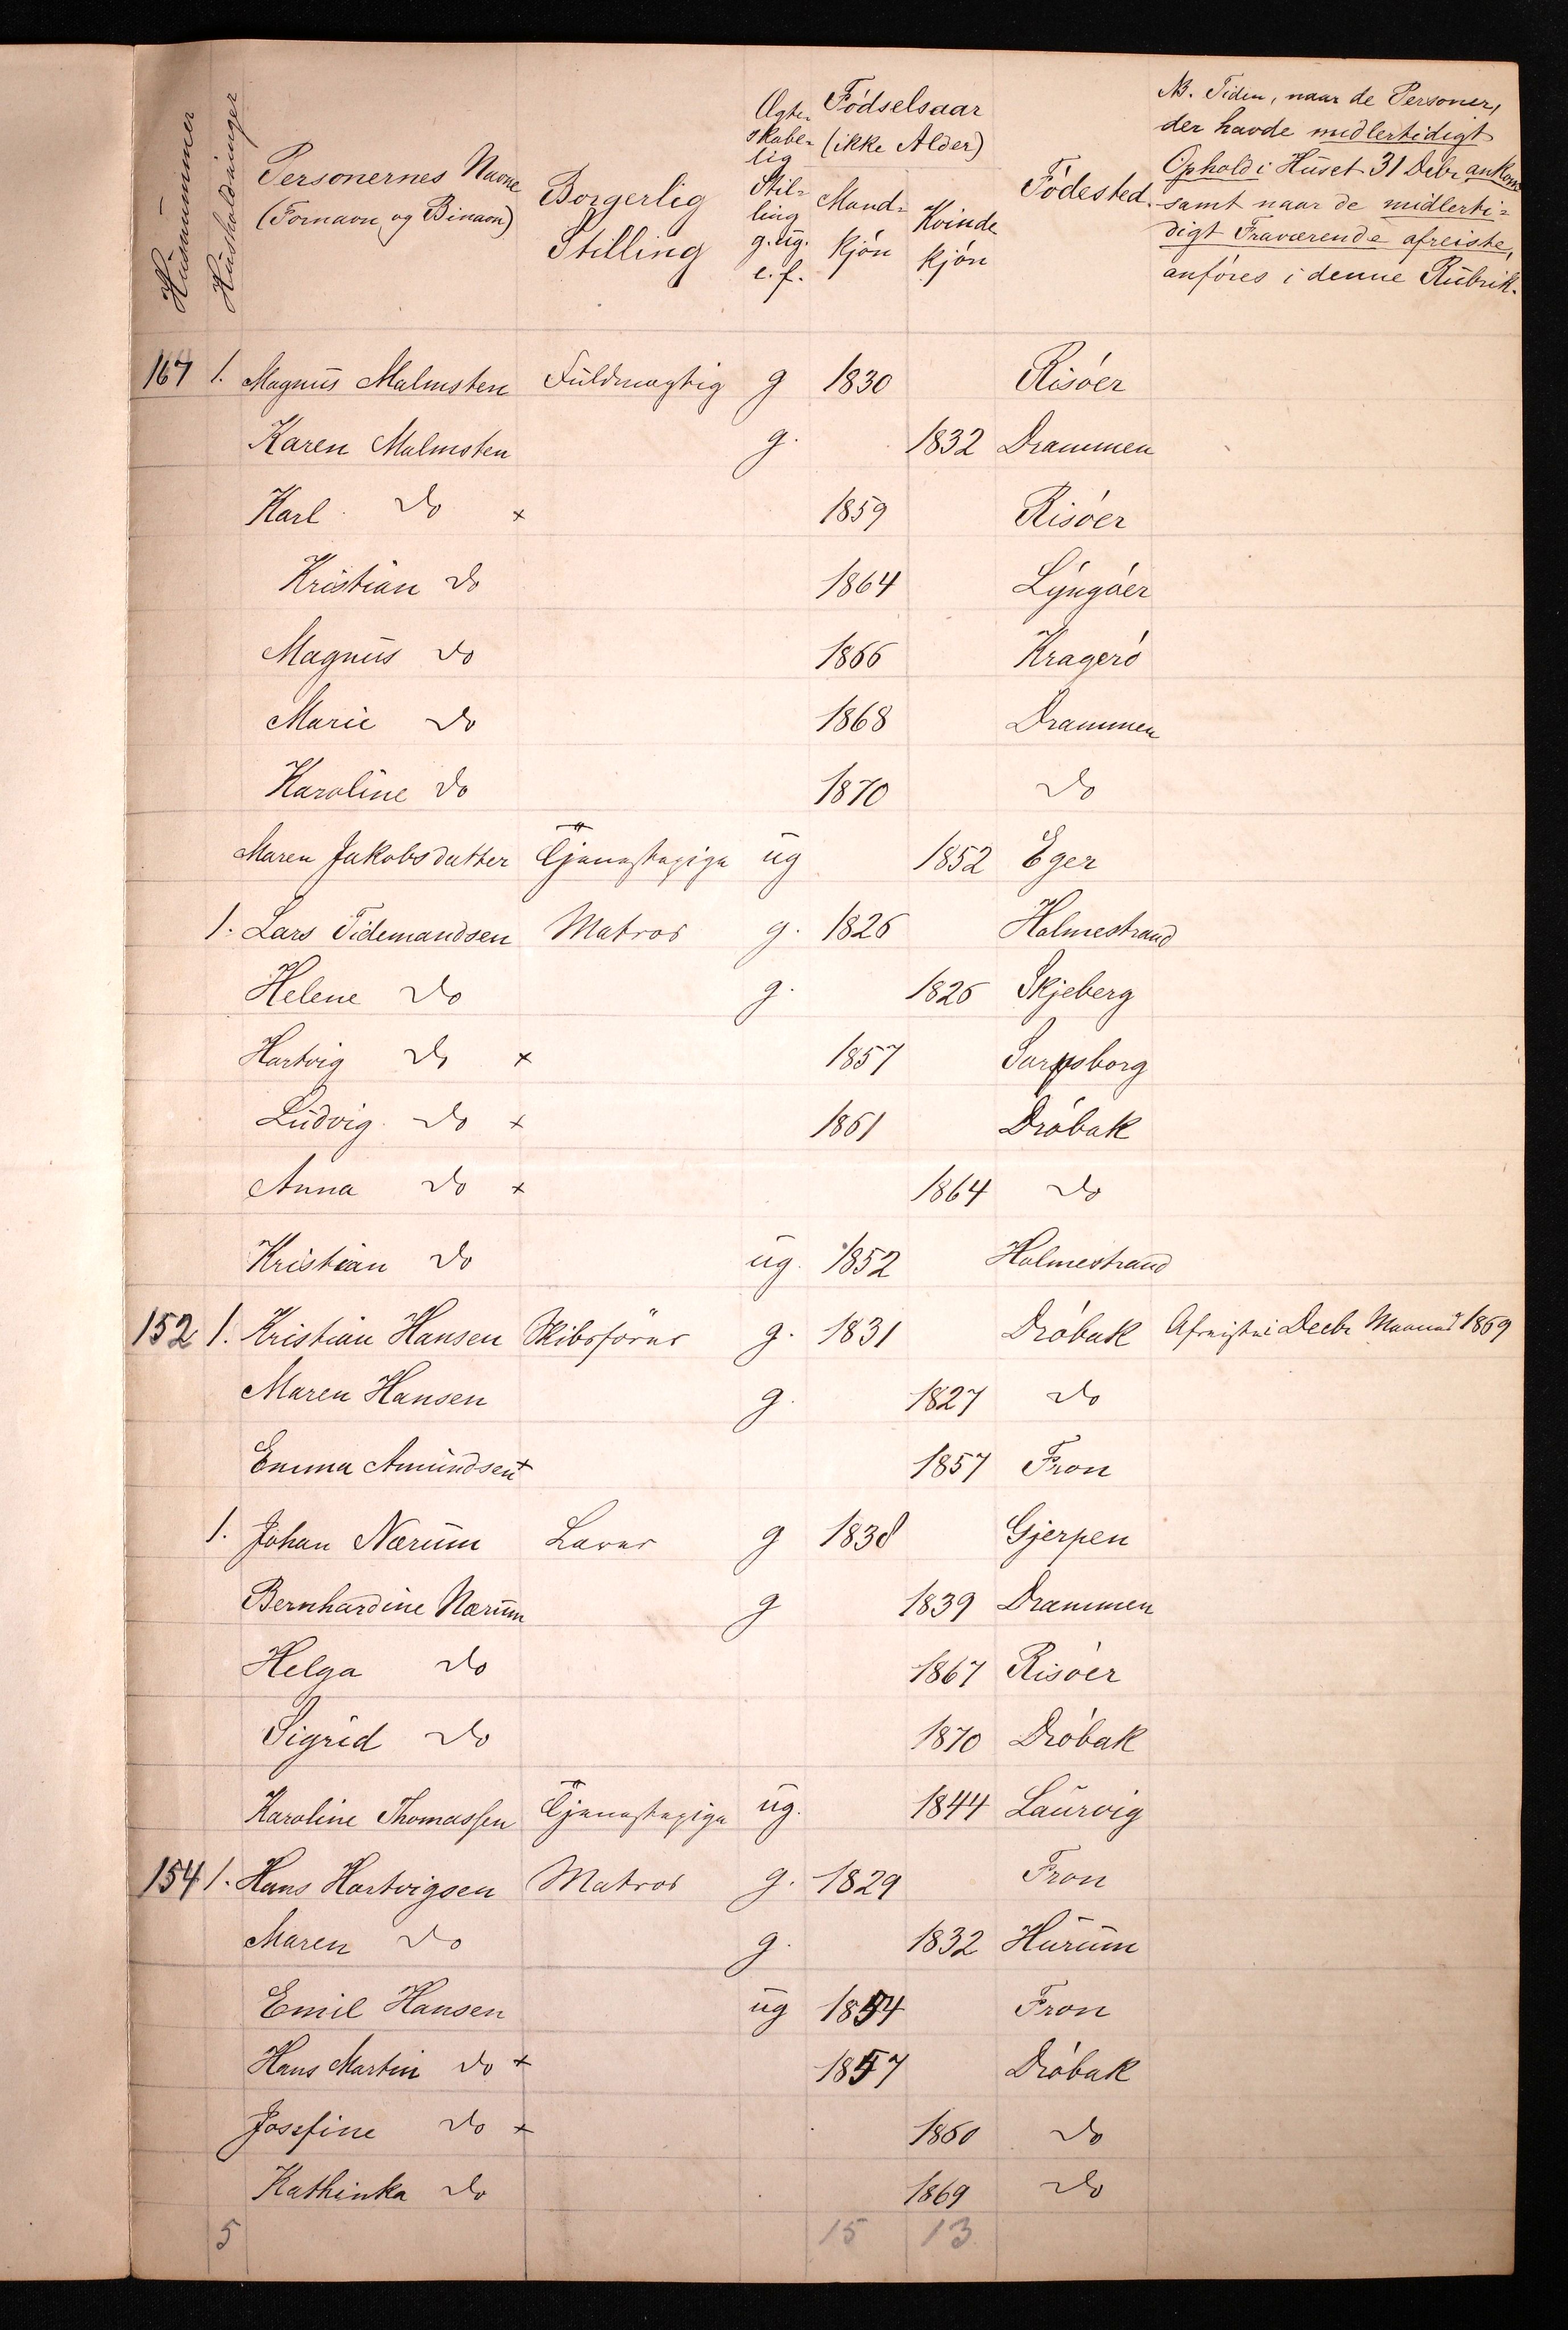 Husnummer
Husholdninger
Personernes Navne
(Fornavn og Binavn)
Borgerlig
Stilling
Ægte-
skabe-
lig
Stil-
ling
g. ug.
e. f.
Fødselsaar
(ikke Alder)
Mand-
kjøn
Kvinde
kjøn
Fødested.
NB. Tiden, naar de Personer,
der havde midlertidigt
Ophold i Huset 31 Debr ankom
samt naar de midlerti-
digt Fraværende afreiste,
anføres i denne Rubrik.
167 1. Magnus Malmsten Fuldmægtig g 1830 Risøer
Karen Malmsten g. 1832 Drammen
Karl do x 1859 Risøer
Kristian do 1864 Lyngøer
Magnus do 1866 Kragerø
Marie do 1868 Drammen
Karoline do 1870 do
Maren Jakobsdatter Tjenestepige ug 1852 Eger
1. Lars Tidemandsen Matros g. 1826 Holmestrand
Helene do g. 1826 Skjeberg
Hartvig do x 1857 Sarpsborg
Ludvig do x 1861 Drøbak
Anna do x 1864 do
Kristian do ug. 1852 Holmestrand
152 1. Kristian Hansen Skibsfører g. 1831 Drøbak Afreist i Decbr Maaned 1869
Maren Hansen g. 1827 do
Emma Amundsen x 1857 Fron
1. Johan Nærum Lærer g 1838 Gjerpen
Bernhardine Nærum g 1839 Drammen
Helga do 1867 Risøer
Sigrid do 1870 Drøbak
Karoline Thomassen Tjenestepige ug. 1844 Laurvig
154 1. Hans Hartvigsen Matros g. 1829 Fron
Maren do g. 1832 Hurum
Emil Hansen ug 1854 Fron
Hans Martin do x 1857 Drøbak
Josefine do x 1860 do
Kathinka do 1869 do
5 15 13